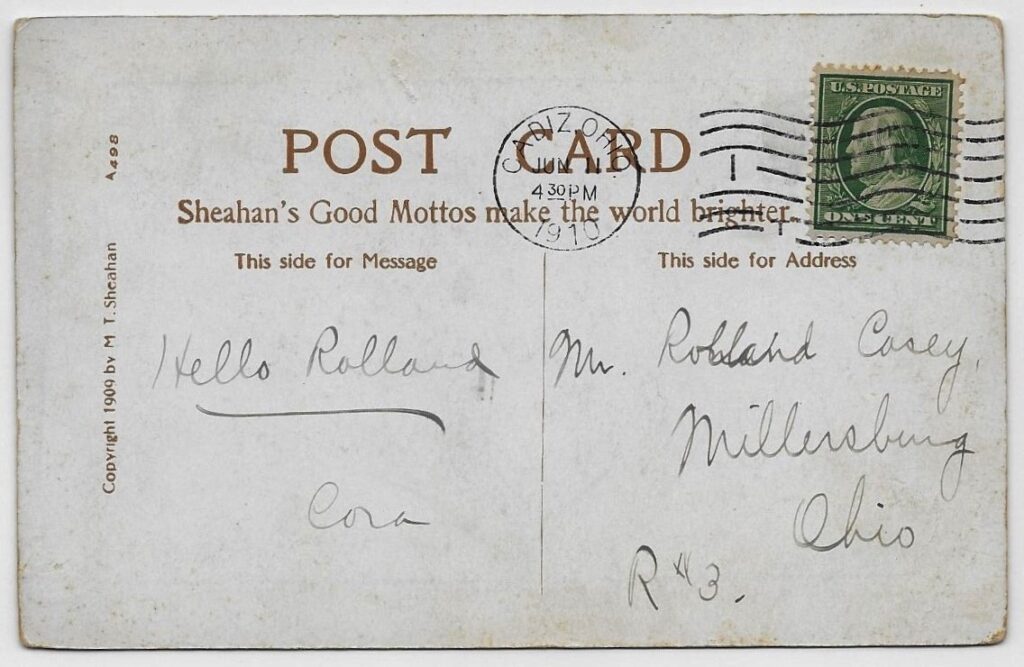 U.S. POSTAGE
ONE CENT
CADIZ, OHIO.
JUN 11
4 30 PM
1910
I
T
POST CARD
Sheahan's Good Mottos make the world brighter.
This side for Message
This side for Address
A498
Copyright 1909 by M. T. Sheahan
Hello Rolland
Cora
Mr. Rolland Casey,
Millersburg
Ohio
R#3.